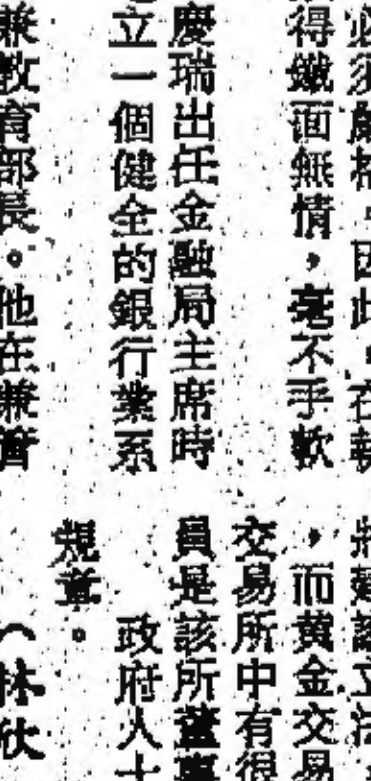 必須嚴格，因此，在執
得鐵面無情，毫不手軟
慶瑞出任金融局主席時
立一個健全的銀行業系
兼教育部長。他在兼管
該立法
，而黃金交易
交易所中有很
員是該所董事
政府人士
規章。
（林欣